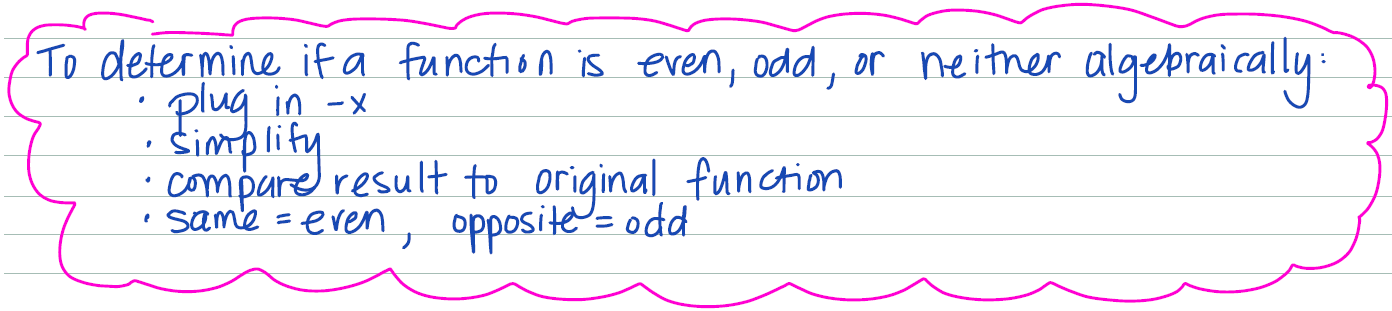 To determine if a function is even, odd, or neither algebraically:
• plug in -x
• simplify
• compare result to original function
• same = even, opposite = odd